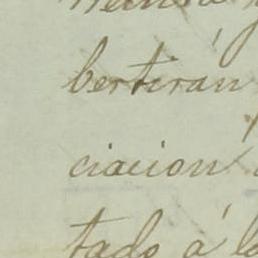 bertirán
ciacion
tado á la